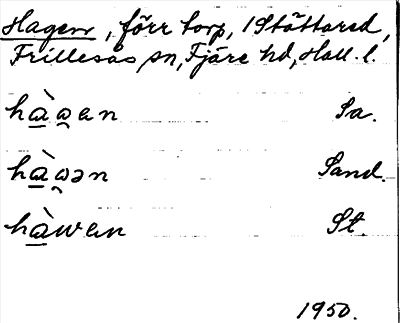 Hagen, förr torp, 1 Stättared,
Frillesås sn, Fjäre hd, Hall. l.
hàɷ̯an Sa.
hàɷ̯ən Sand.
hàwen St.
1950.